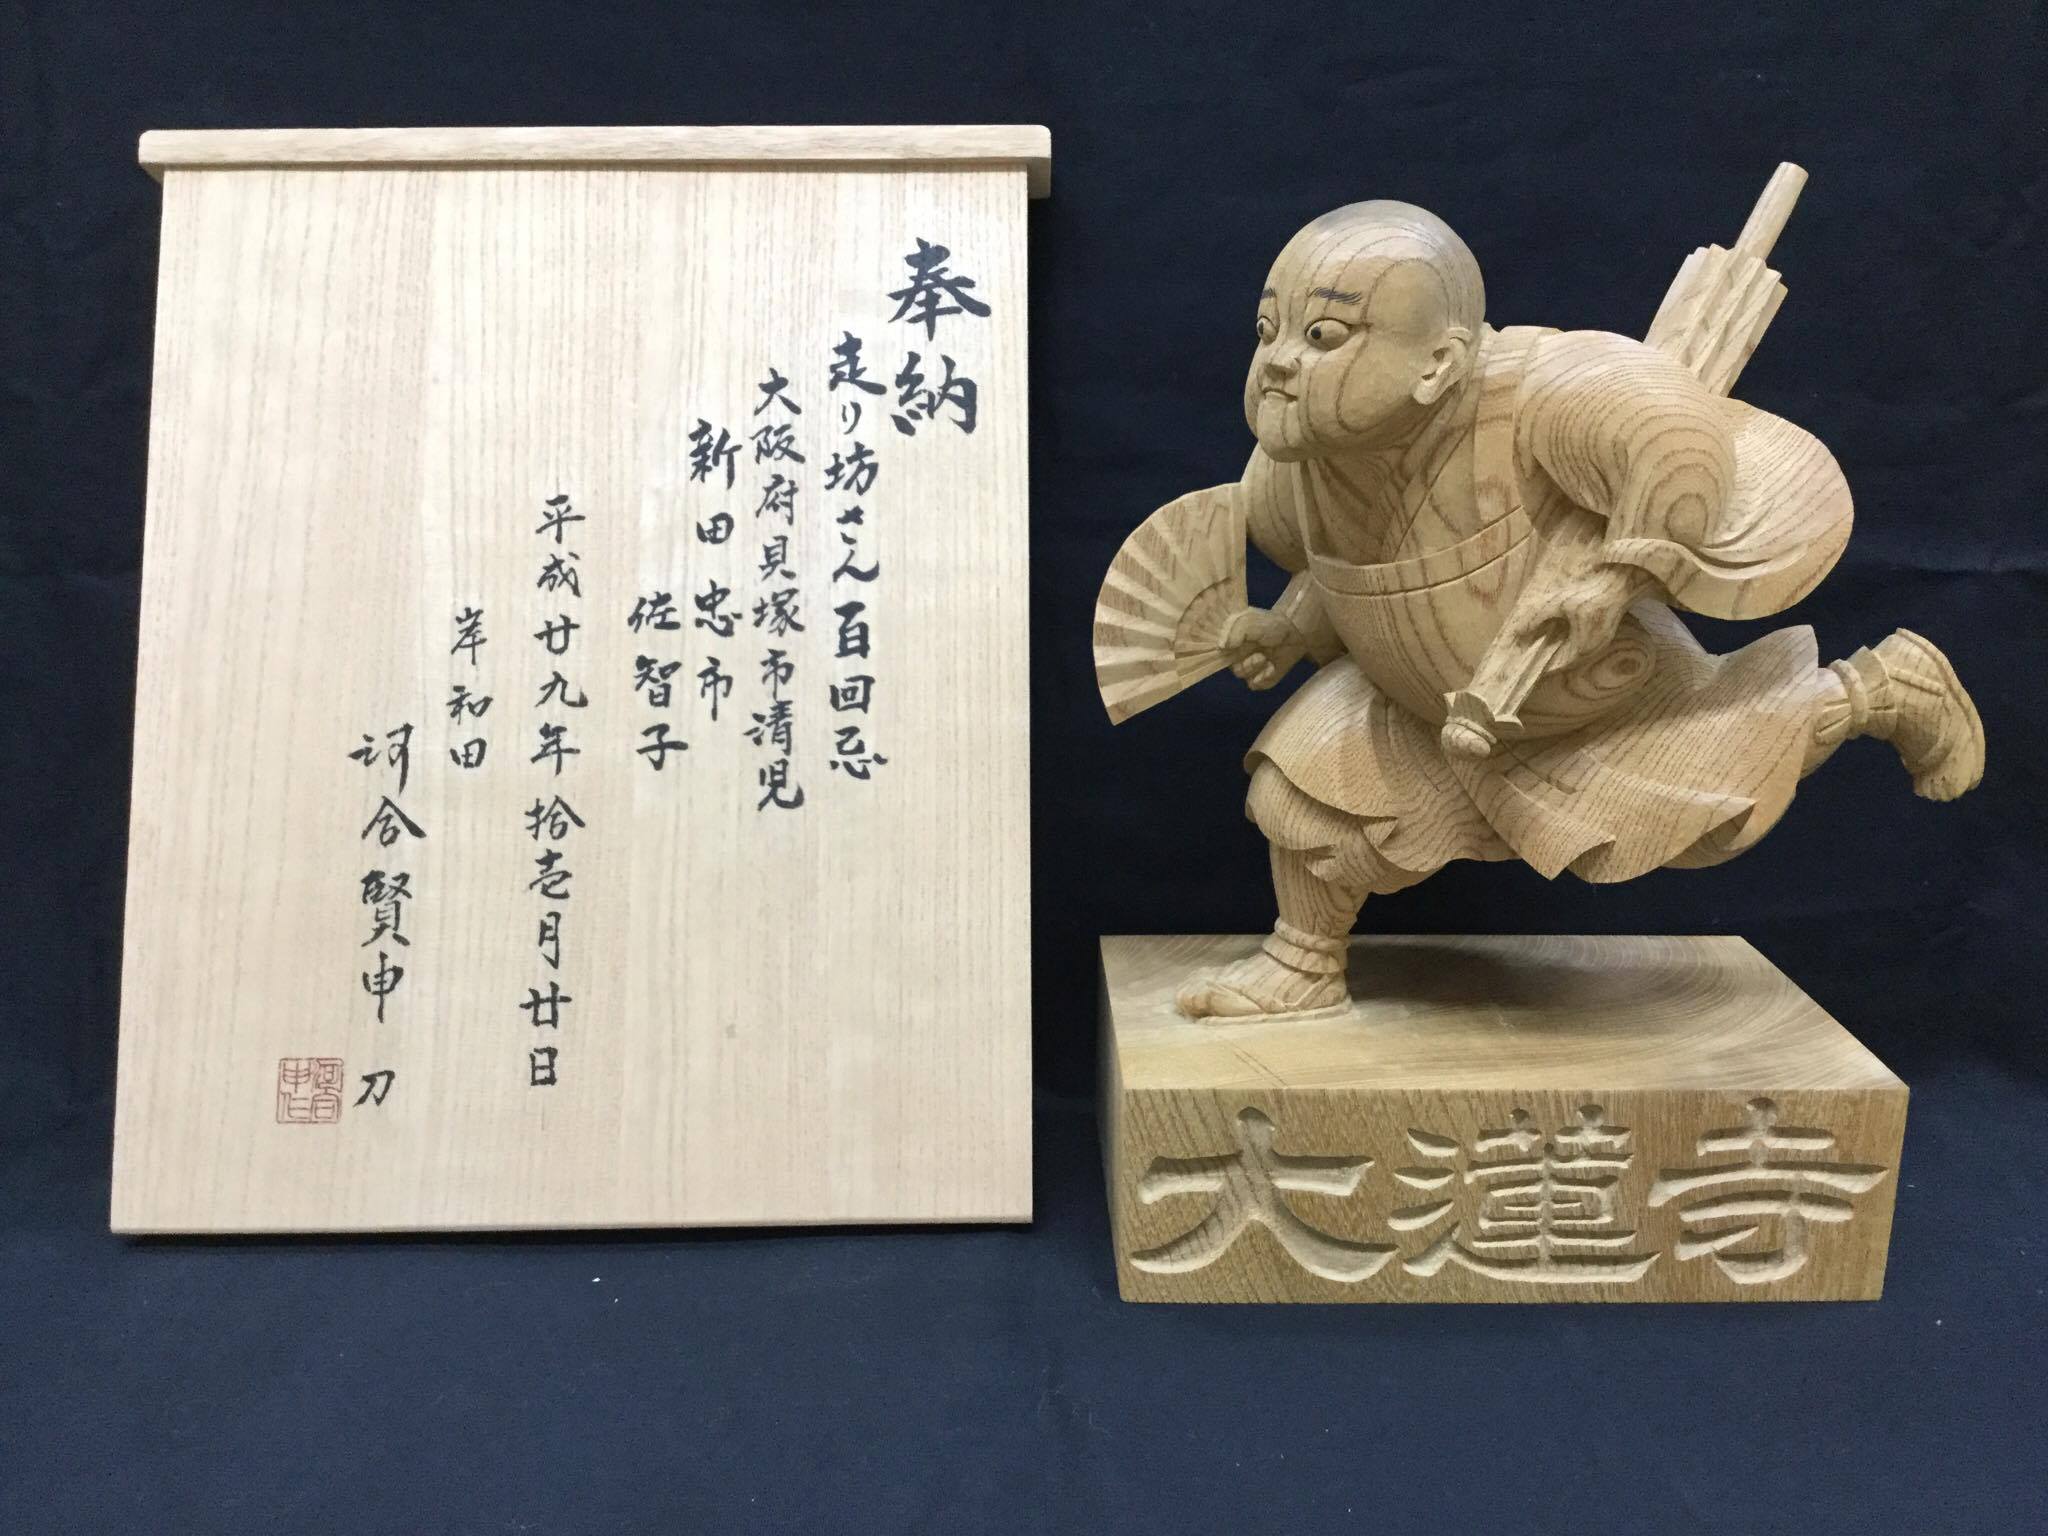 奉納
走り坊さん百回忌
大阪府貝塚市清児
新田忠市
佐智子
平成廿九年拾壱月廿日
岸和田
河合賢申刀
大蓮寺